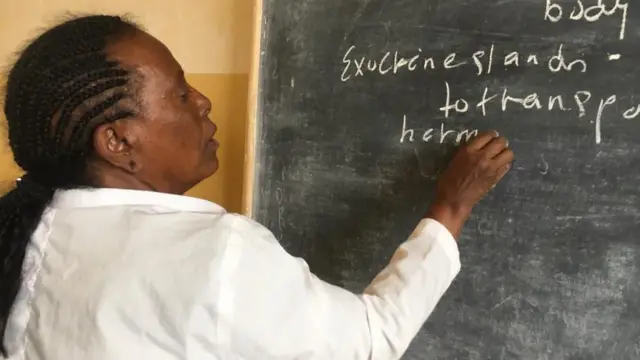 body
Exocrine glands -
to transpo
horm